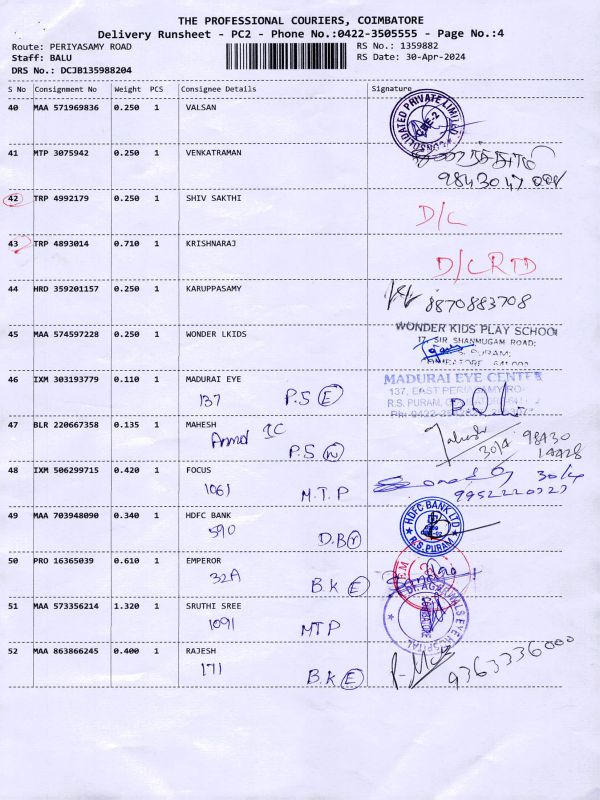 THE PROFESSIONAL COURIERS, COIMBATORE
Delivery Runsheet - PC2 - Phone No.:0422-3505555 - Page No.:4
Route: PERIYASAMY ROAD RS No.: 1359882
Staff: BALU RS Date: 30-Apr-2024
DRS No.: DCJB135988204
S No Consignment No Weight PCS Consignee Details Signature
40 MAA 571969836 0.250 1 VALSAN
41 MTP 3075942 0.250 1 VENKATRAMAN
42 TRP 4992179 0.250 1 SHIV SAKTHI
D/C
43 TRP 4893014 0.710 1 KRISHNARAJ
D/C RTD
44 HRD 359201157 0.250 1 KARUPPASAMY
8870883708
45 MAA 574597228 0.250 1 WONDER LKIDS
WONDER KIDS PLAY SCHOOL
17, SIR SHANMUGAM ROAD,
46 IXM 303193779 0.110 1 MADURAI EYE
MADURAI EYE CENTER
137 P.S E
137, EAST
R.S. PURAM,
47 BLR 220667358 0.135 1 MAHESH
P.S
30/4 98430
14428
48 IXM 506299715 0.420 1 FOCUS
1061 M.T.P
30/4
49 MAA 703948090 0.340 1 HDFC BANK
HDFC BANK LTD
R.S. PURAM
590 D.B
50 PRO 16365039 0.610 1 EMPEROR
32A B.K E
51 MAA 573356214 1.320 1 SRUTHI SREE
1091 MTP
DR. AGARWALS EYE HOSPITAL
COIMBATORE
52 MAA 863866245 0.400 1 RAJESH
171 B.K E
9363336000